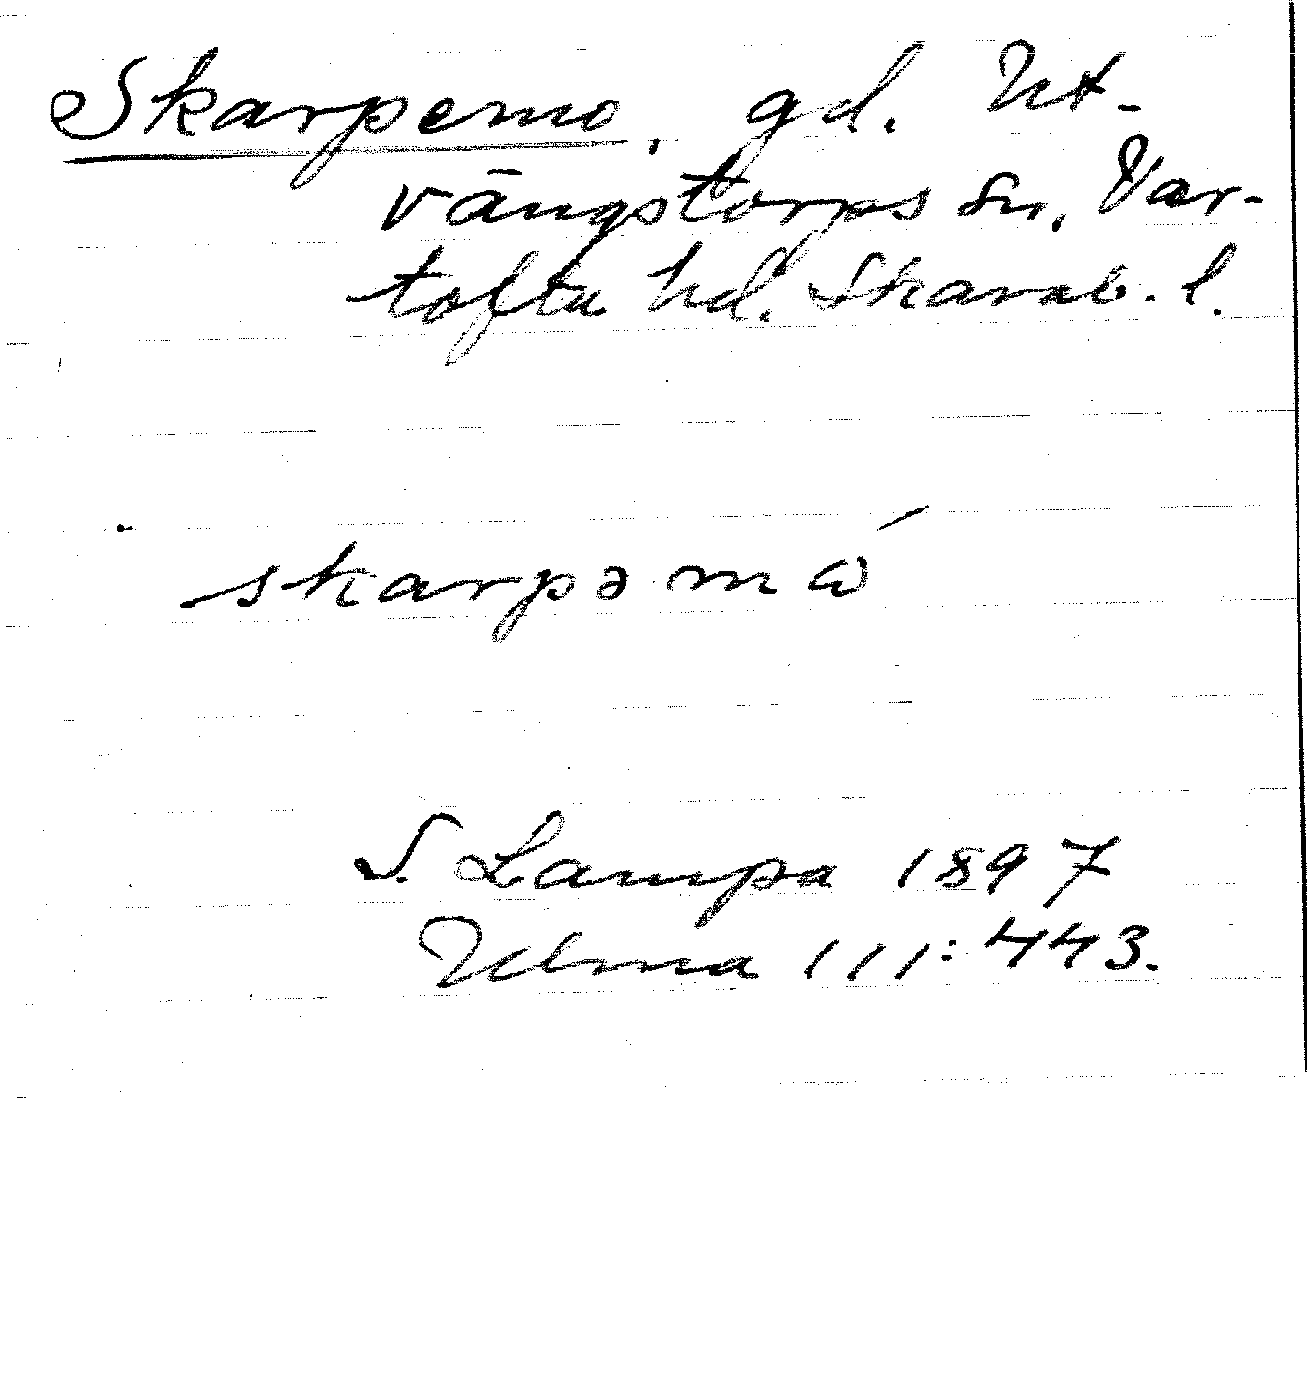 Skarpemo, gd. Ut-
vängstorps sn, Var-
tofta hd. Skarab. l.
skarpəmω´
S. Lampa 1897
Ulma 111:443.